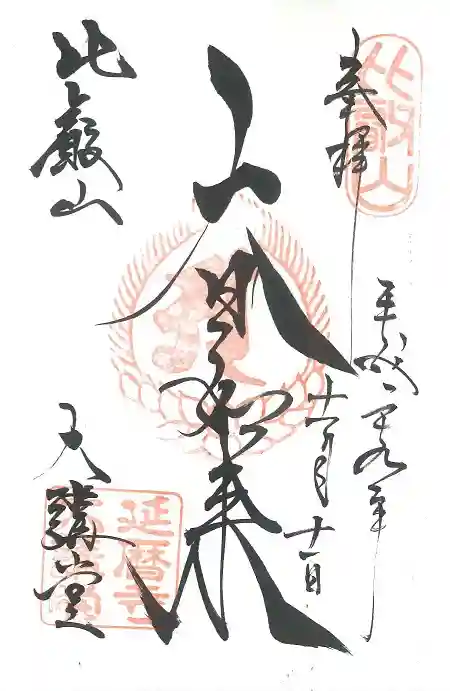 奉拝
比叡山
平成二十九年
十一月十一日
大日如来
比叡山
大講堂
延暦寺